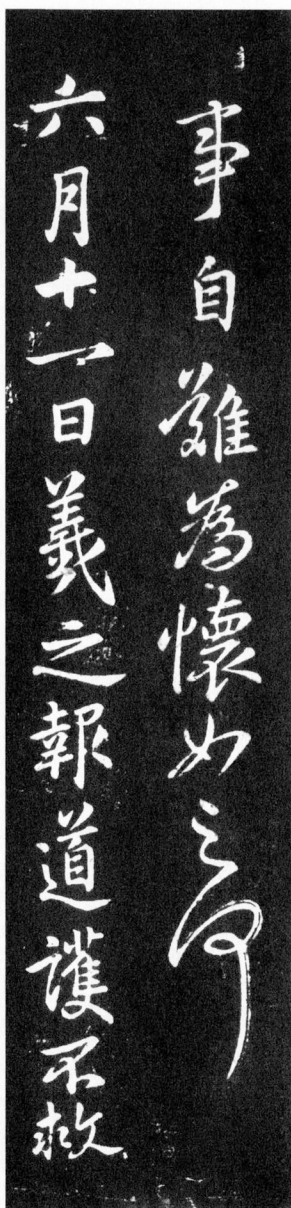 事自難為懷如之何
六月十一日羲之報道護不救